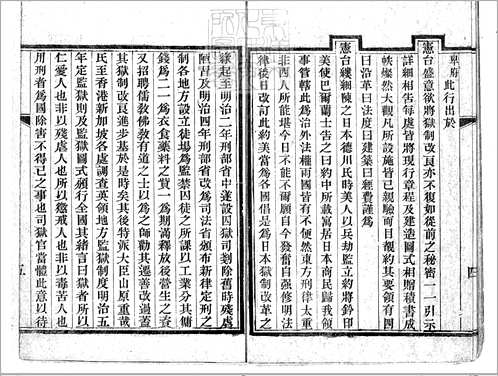 卑府此行出於
憲台盛意欲將獄制改良亦不復如從前之秘密一一引示
詳細相告每處皆將現行章程及建築圖式相贈積書成
帙燦然大觀凡所設施皆已親驗而目覩約其要領有四
曰沿革曰法度曰建築曰經費謹為
憲台縷細陳之日本德川氏時美人以兵劫監立約將鈐印
美使巴爾蘭士告之曰約中所載寓居日本商民歸我領
事管轄此為治外法權兩國皆有不便然東方刑律太重
非西人所能堪今日不能不爾願自今發奮自强修明法
律後日改訂此約美當為各國倡是為日本獄制改革之
緣起至明治二年刑部省中遂設囚獄司剗除舊時殘虐
陋習及明治四年刑部省改為司法省頒布新律定刑之
制各地方設立徒場為監禁囚徒之所課以工業分其傭
錢為二一為衣食藥料之費一為期滿釋放後營生之資
又招聘儒教佛教有道之士以為之師勸其遷善改過蓋
其獄制改良進步基於是時矣其後特派大臣山原重哉
民至香港新加坡各處調查英領地方監獄制度明治五
年定監獄則及監獄圖式頒行全國其緒言曰獄者所以
仁愛人也非以殘虐人也所以懲戒人也非以毒苦人也
用刑者為國除害不得已之事也司獄官當體此意以待
四
五